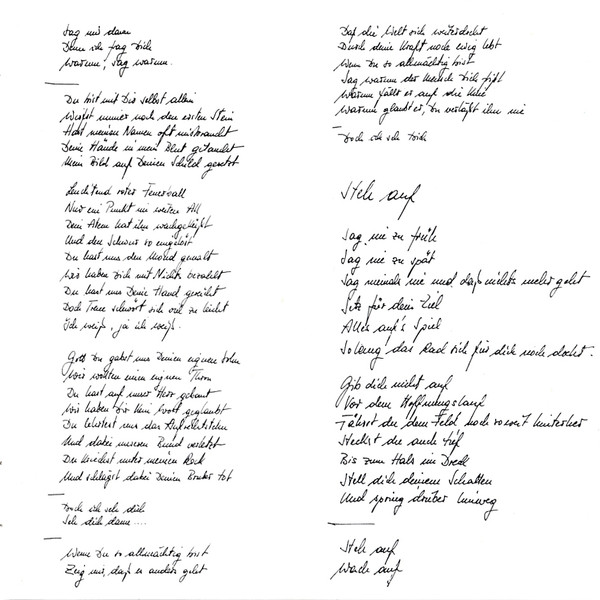 Sag mir dann
Denn ich frag Dich
Warum, sag warum.
Du bist mit Dir selbst allein
Wirfst immer noch den ersten Stein
Hast meinen Namen oft missbraucht
Deine Hände in mein Blut getaucht
Mein Bild auf Deinen Schild gesetzt
Leuchtend roter Feuerball
Nur ein Punkt im weiten All
Dein Atem hat ihn
Und den Schwur so eingelöst
Du hast uns den Mond gemalt
Wir haben Dich mit Nichts bezahlt
Du hast uns Deine Hand gereicht
Doch Treue schwört sich viel zu leicht
Ich weiß, ja ich weiß.
Gott Du gabst uns Deinen eignen Sohn
Wir wollten einen eignen Thron
Du hast auf unser Herz gebaut
Wir haben Dir kein Wort geglaubt
Du lehrtest uns das Aufrechtstehn
Und dabei unseren Bund verletzt
Du kriechst unter meinen Rock
Und schlägst dabei Deinen Bruder tot
Doch ich seh dich
Seh dich dann ....
Wenn Du so allmächtig bist
Zeig mir, daß es anders geht
Daß die Welt sich weiterdreht
Durch deine Kraft noch ewig lebt
Wenn Du so allmächtig bist
Sag warum der Mensch Dich
Warum fällt er auf die Knie
Warum glaubt er, Du verläßt ihn nie
Doch ich seh Dich
Steh auf
Sag nie zu früh
Sag nie zu spät
Sag niemals nie und daß nichts mehr geht
Setz für dein Ziel
Alles auf's Spiel
Solang das Rad sich für dich noch dreht.
Gib dich nicht auf
Vor dem Hoffnungslauf
Fährst du dem Feld noch so weit hinterher
Steckst du auch tief
Bis zum Hals im Dreck
Stell dich deinem Schatten
Und spring drüber hinweg
Steh auf
Wach auf